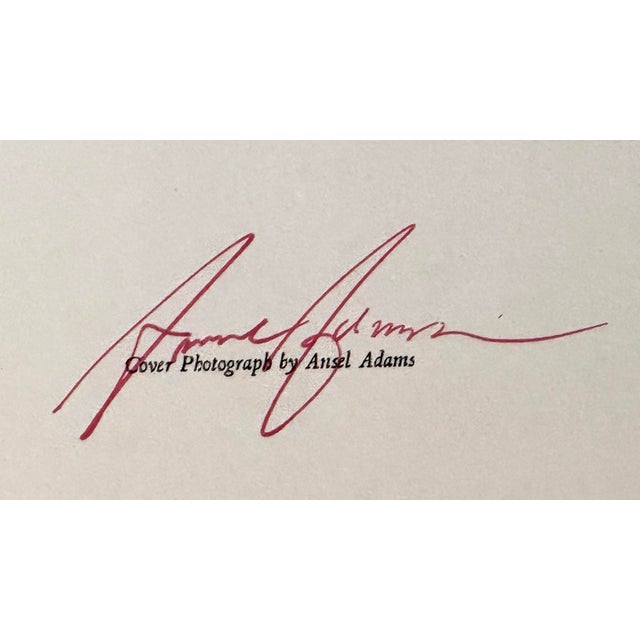 Ansel Adams
Cover Photograph by Ansel Adams